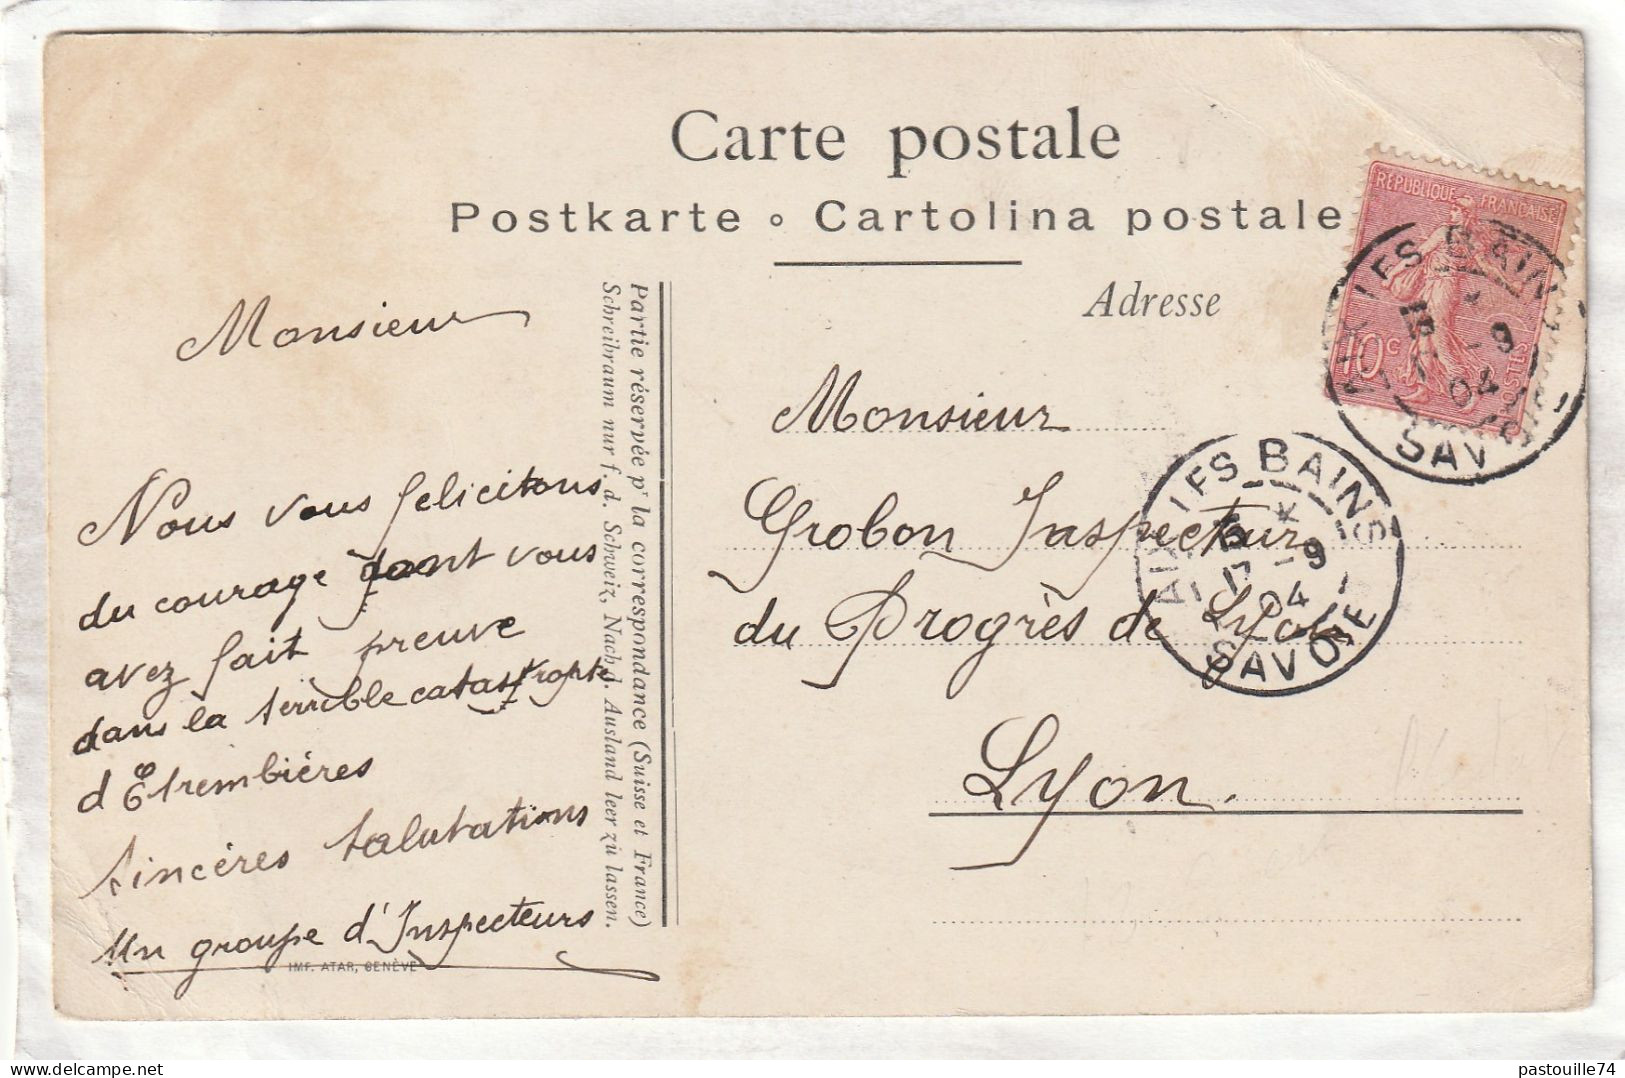 Carte postale
Postkarte ∘ Cartolina postale
Adresse
RÉPUBLIQUE FRANÇAISE
10c
POSTES
AIX LES BAINS
9
04
SAVOIE
Partie réservée pr la correspondance (Suisse et France)
Schreibraum nur f. d. Schweiz, Nach d. Ausland leer zù lassen.
Monsieur
Nous vous felicitons
du courage dont vous
avez fait preuve
dans la terrible catastrophe
d'Etrembières
Sincères Salutations
Un groupe d'Inspecteurs
IMP. ATAR, GENÈVE
Monsieur
Grobon Inspecteur
du Progrès de Lyon
Lyon.
AIX LES BAINS
9
04
SAVOIE
pastouille74